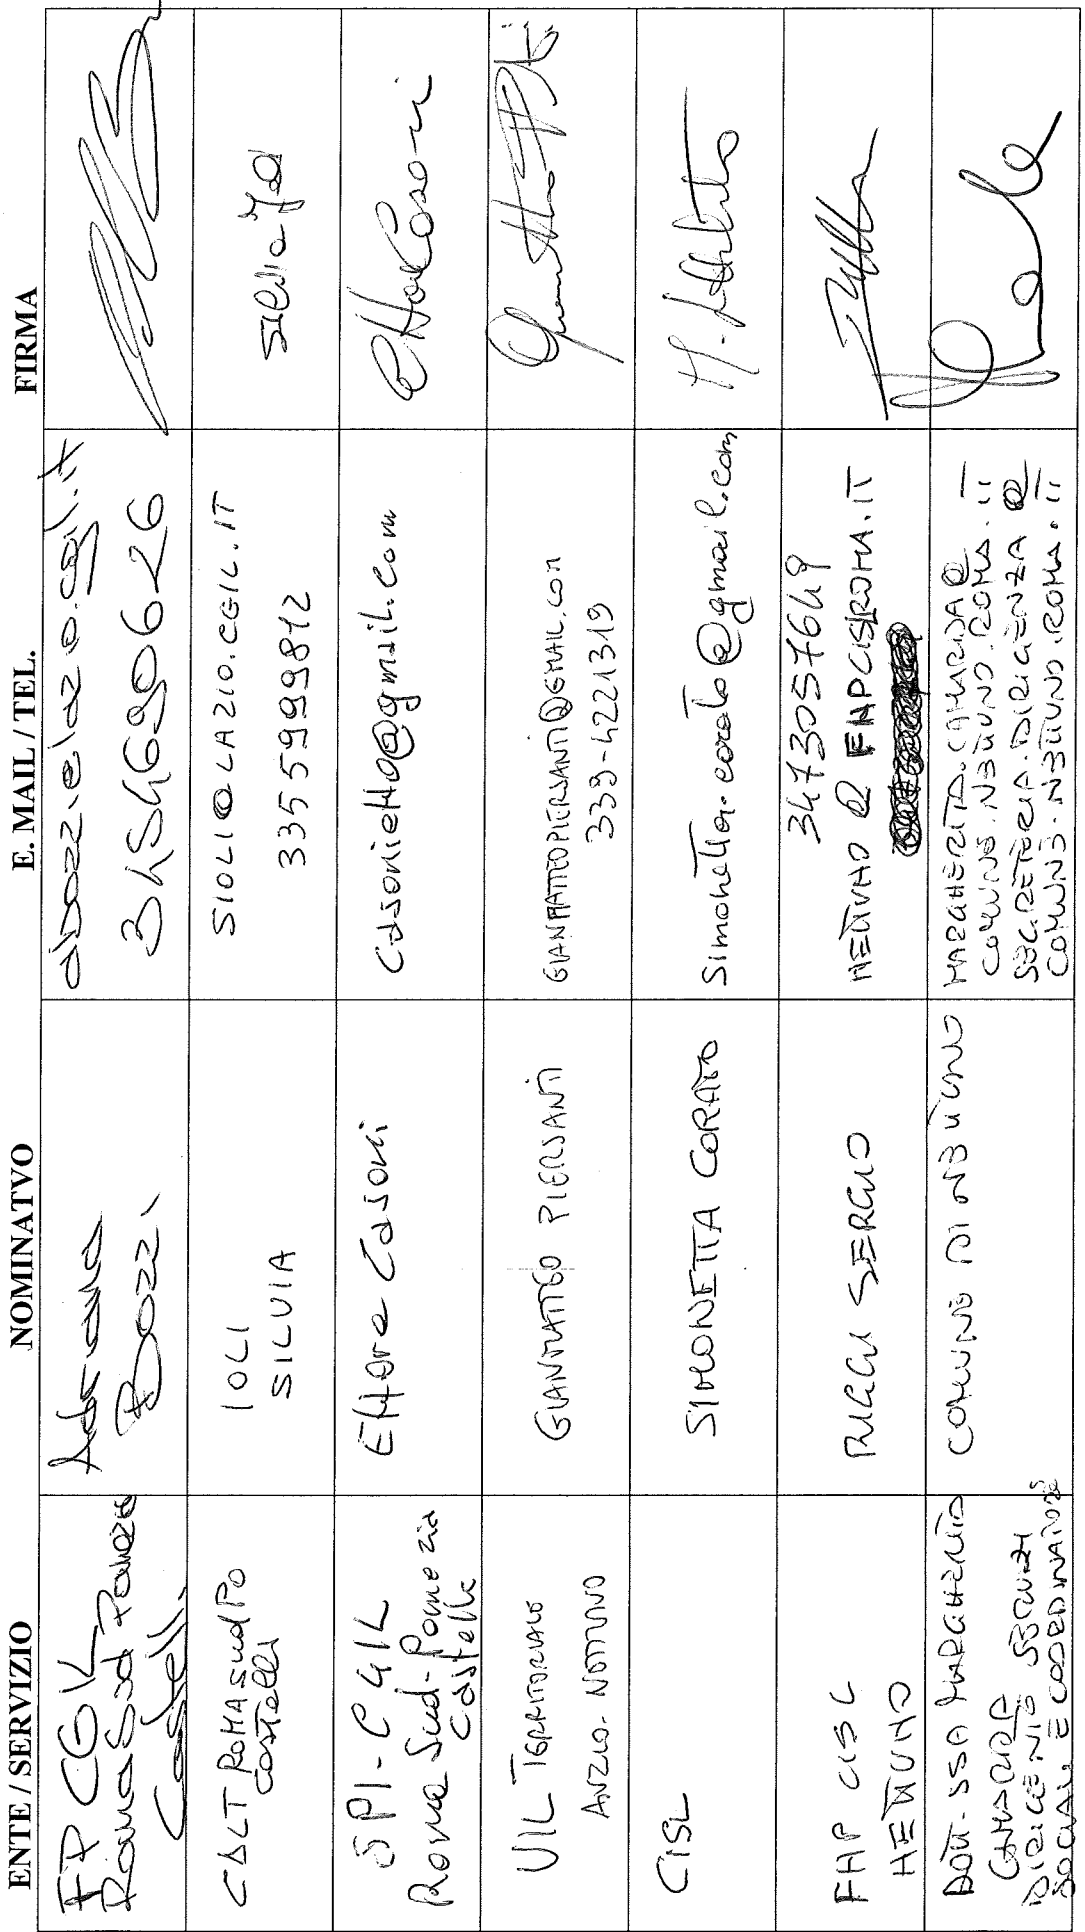 ENTE / SERVIZIO
NOMINATVO
E. MAIL / TEL.
FIRMA
FP CGIL
Roma Sud Pomezia
Castelli
Adriana
Bozzi
abozzi@lazio.cgil.it
3454690626
CDLT ROMA Sud Po
Castelli
IOLI
SILVIA
SIOLI@LAZIO.CGIL.IT
3355999812
Silvia Ioli
SPI-CGIL
Roma Sud-Pomezia
Castelli
Ettore Casoni
casonietto@gmail.com
Ettore Casoni
UIL TERRITORIALE
ANZIO-NETTUNO
GIANMATTEO PIERSANTI
GIANMATTEOPIERSANTI@GMAIL.COM
339-4221319
CISL
SIMONETTA CORATO
Simonetta.corato@gmail.com
FNP CISL
NETTUNO
RIGGI SERGIO
3473057649
NETTUNO@FNPCISLROMA.IT
DOTT.SSA MARGHERITA
CAMARDA
DIRIGENTE SERVIZI
SOCIALI E COORDINATORE
COMUNE DI NETTUNO
MARGHERITA.CAMARDA@
COMUNE.NETTUNO.ROMA.IT
SEGRETERIA.DIRIGENZA@
COMUNE.NETTUNO.ROMA.IT